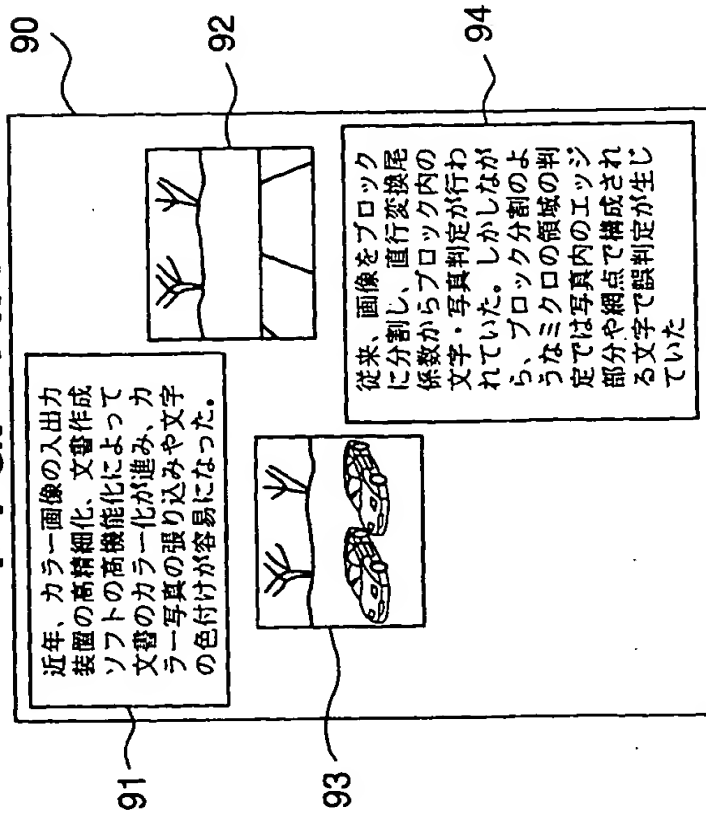 90
91
近年、カラー画像の入出力
装置の高精細化、文書作成
ソフトの高機能化によって
文書のカラー化が進み、カ
ラー写真の張り込みや文字
の色付けが容易になった。
92
93
94
従来、画像をブロック
に分割し、直行変換尾
係数からブロック内の
文字・写真判定が行わ
れていた。しかしなが
ら、ブロック分割のよ
うなミクロの領域の判
定では写真内のエッジ
部分や網点で構成され
る文字で誤判定が生じ
ていた